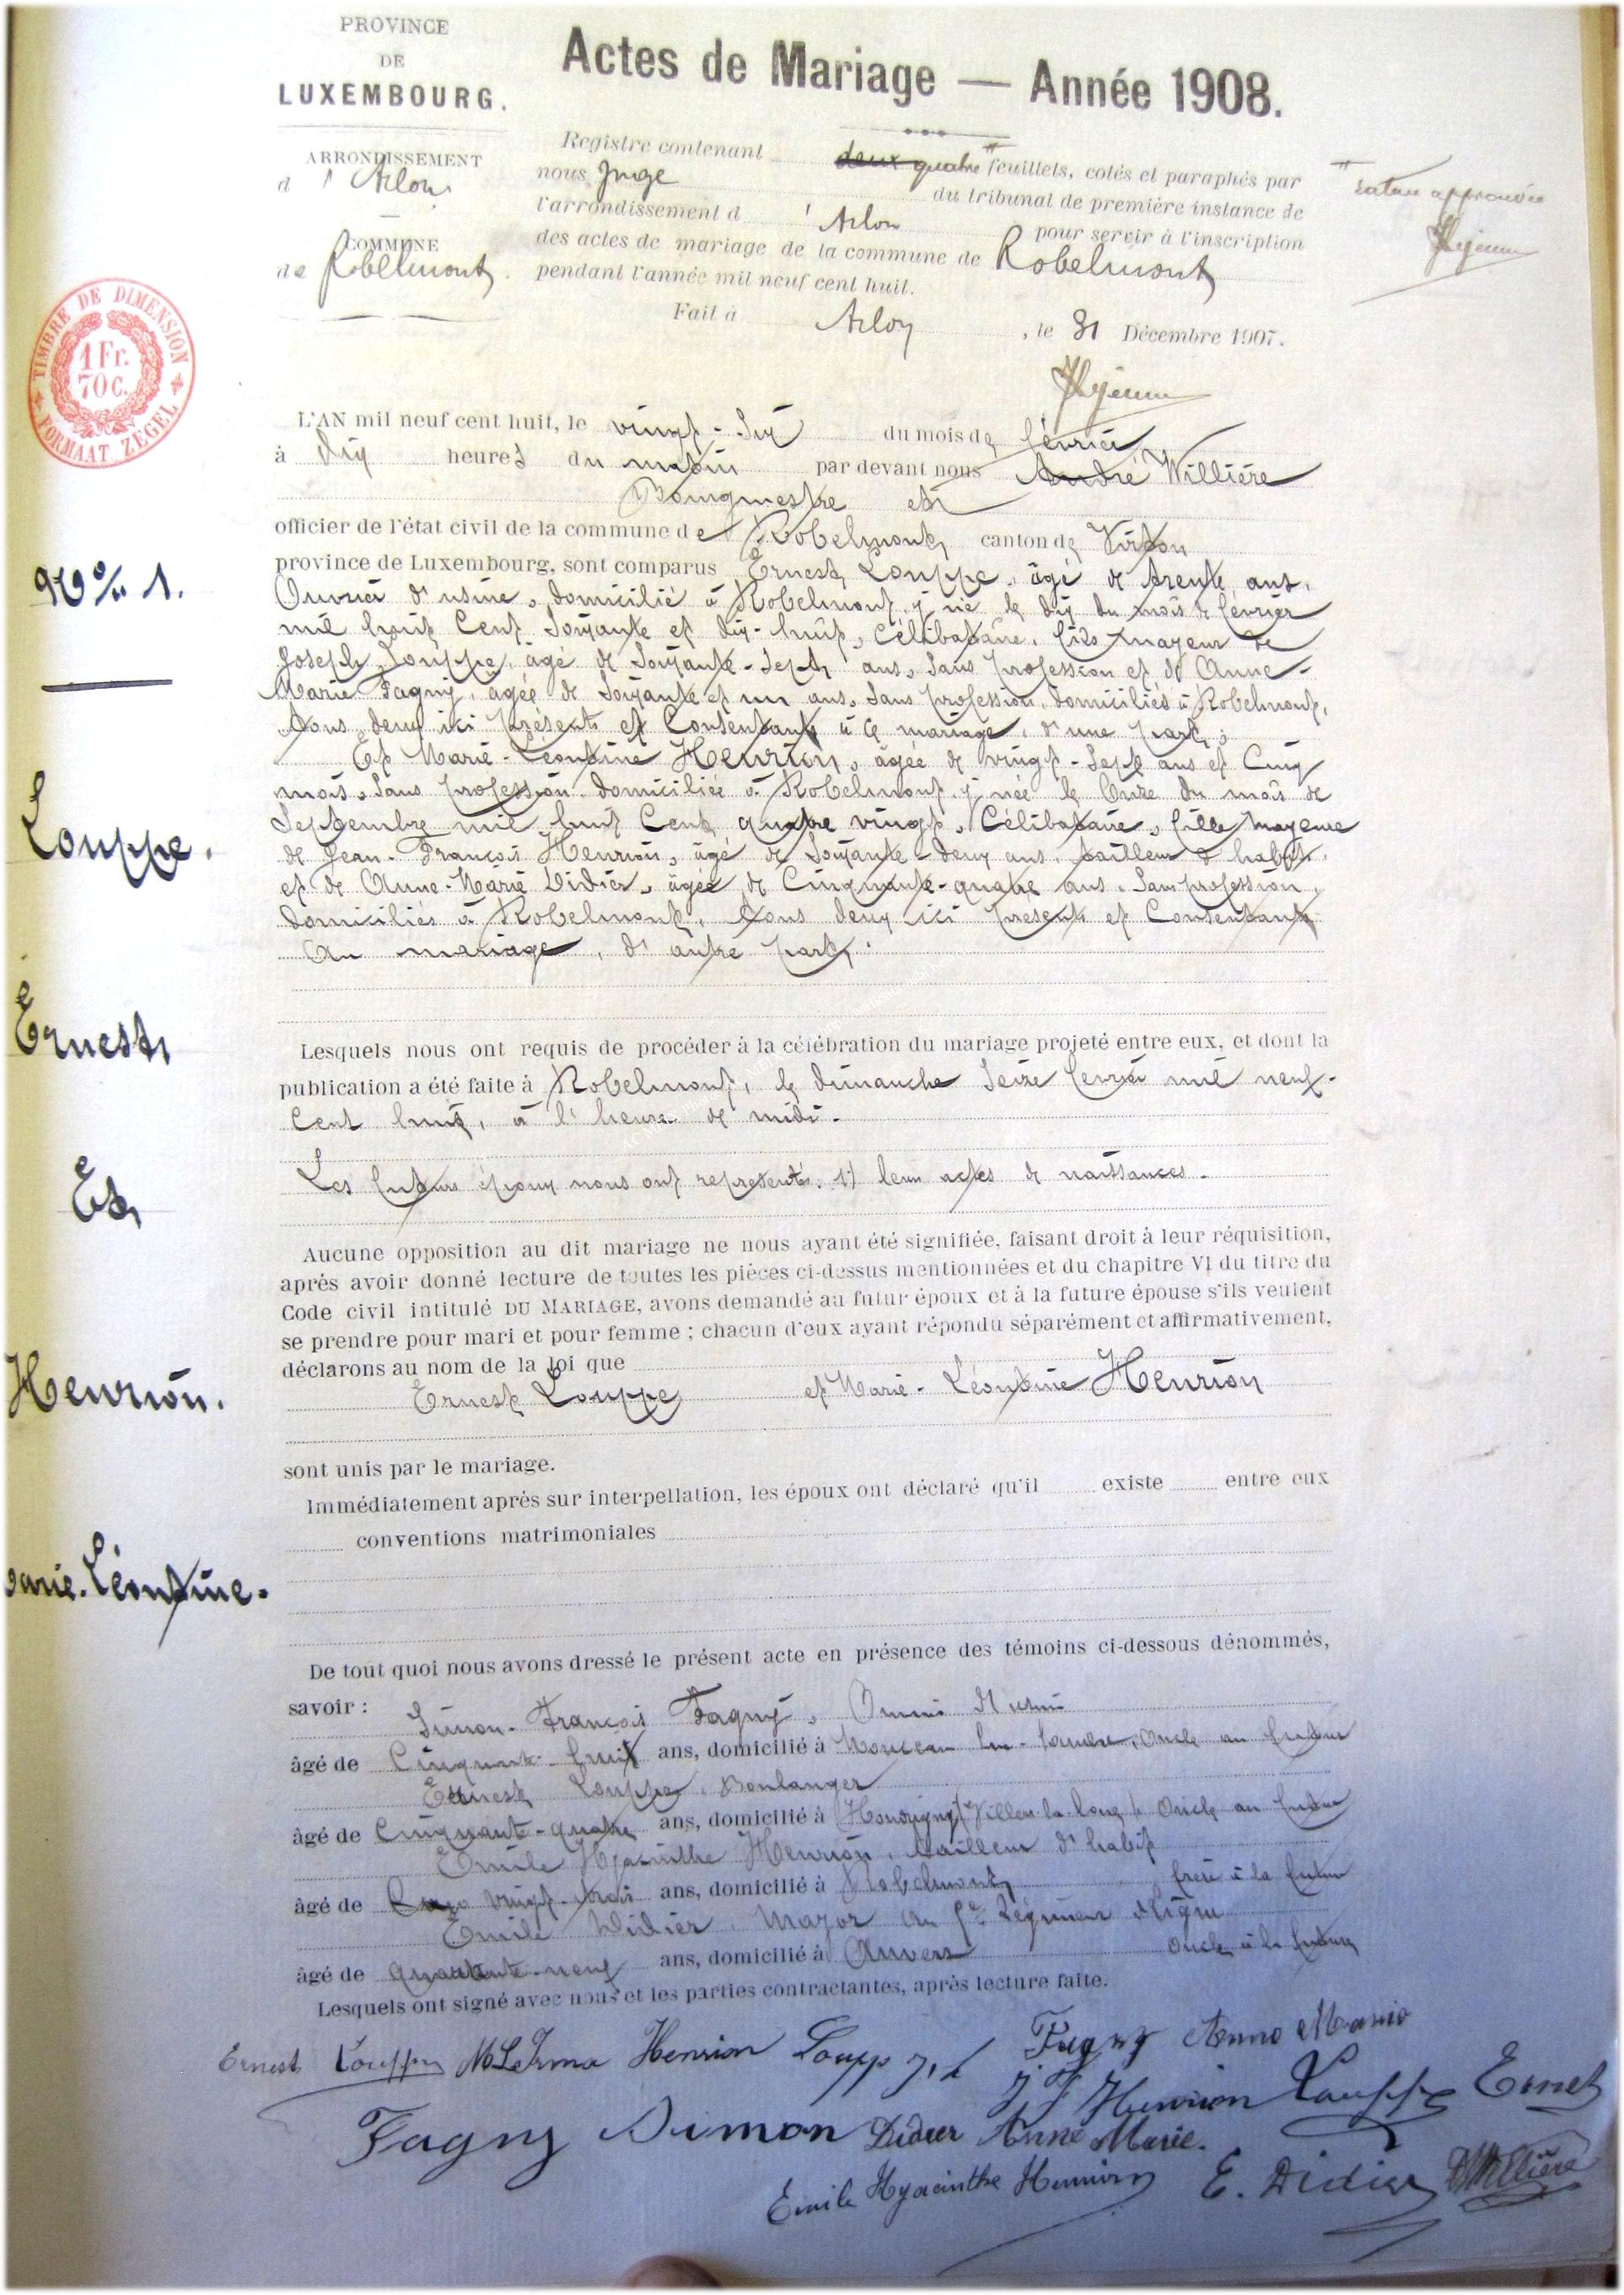 PROVINCE
DE
LUXEMBOURG.
ARRONDISSEMENT
d'Arlon
COMMUNE
de Robelmont.
Actes de Mariage — Année 1908.
Registre contenant deux quatre feuillets, cotés et paraphés par
nous Juge du tribunal de première instance de
l'arrondissement d'Arlon pour servir à l'inscription
des actes de mariage de la commune de Robelmont
pendant l'année mil neuf cent huit.
Fait à Arlon, le 31 Décembre 1907.
approuvée
TIMBRE DE DIMENSION
1 Fr.
70 C.
FORMAAT ZEGEL
L'AN mil neuf cent huit, le vingt-six du mois de février
à dix heures du matin par devant nous André Willière
Bourgmestre et
officier de l'état civil de la commune de Robelmont, canton de Virton
province de Luxembourg, sont comparus Ernest Louppe, âgé de trente ans,
Ouvrier d'usine, domicilié à Robelmont, y né le dix du mois de février
mil huit Cent soixante et dix-huit, célibataire, fils majeur de
Joseph Louppe, âgé de soixante-sept ans, sans profession et de Anne-
Marie Fagny, âgée de soixante et un ans, sans profession, domiciliés à Robelmont,
tous deux ici présents et Consentants à ce mariage, d'une part;
Et Marie-Léontine Henrion, âgée de vingt-sept ans et Cinq
mois, sans profession domiciliée à Robelmont, y née le Onze du mois de
Septembre mil huit Cent quatre vingt, Célibataire, fille majeure
de Jean-François Henrion, âgé de soixante-deux ans, tailleur d'habits,
et de Anne-Marie Didier, âgée de Cinquante-quatre ans, sans profession,
domiciliés à Robelmont, tous deux ici présents et Consentants
au mariage, d'autre part.
No 1.
Louppe.
Ernest
Et
Henrion.
Marie-Léontine.
Lesquels nous ont requis de procéder à la célébration du mariage projeté entre eux, et dont la
publication a été faite à Robelmont, le dimanche seize février mil neuf-
Cent huit, à l'heure de midi.
Les futurs époux nous ont représentés: 1) leurs actes de naissances.
Aucune opposition au dit mariage ne nous ayant été signifiée, faisant droit à leur réquisition,
après avoir donné lecture de toutes les pièces ci-dessus mentionnées et du chapitre VI du titre du
Code civil intitulé DU MARIAGE, avons demandé au futur époux et à la future épouse s'ils veulent
se prendre pour mari et pour femme ; chacun d'eux ayant répondu séparément et affirmativement,
déclarons au nom de la loi que
Ernest Louppe et Marie-Léontine Henrion
sont unis par le mariage.
Immédiatement après sur interpellation, les époux ont déclaré qu'il existe entre eux
conventions matrimoniales
De tout quoi nous avons dressé le présent acte en présence des témoins ci-dessous dénommés,
savoir : Simon-François Fagny, Ouvrier d'usine
âgé de Cinquante-huit ans, domicilié à Monceau sur-Sambre, Oncle au futur
Ernest Louppe, Boulanger
âgé de Cinquante-quatre ans, domicilié à (Villers la loue) Oncle au futur
Emile Hyacinthe Henrion, tailleur d'habits
âgé de vingt-trois ans, domicilié à Robelmont, frère à la future
Emile Didier, Major au Régiment de ligne
âgé de quarante-neuf ans, domicilié à Anvers oncle à la future
Lesquels ont signé avec nous et les parties contractantes, après lecture faite.
Ernest Louppe M L Irma Henrion Loupp J, h Fagny Anne Marie
J F Henrion Louppe Ernest
Fagny Simon Didier Anne Marie.
Emile Hyacinthe Henrion E. Didier AWillière